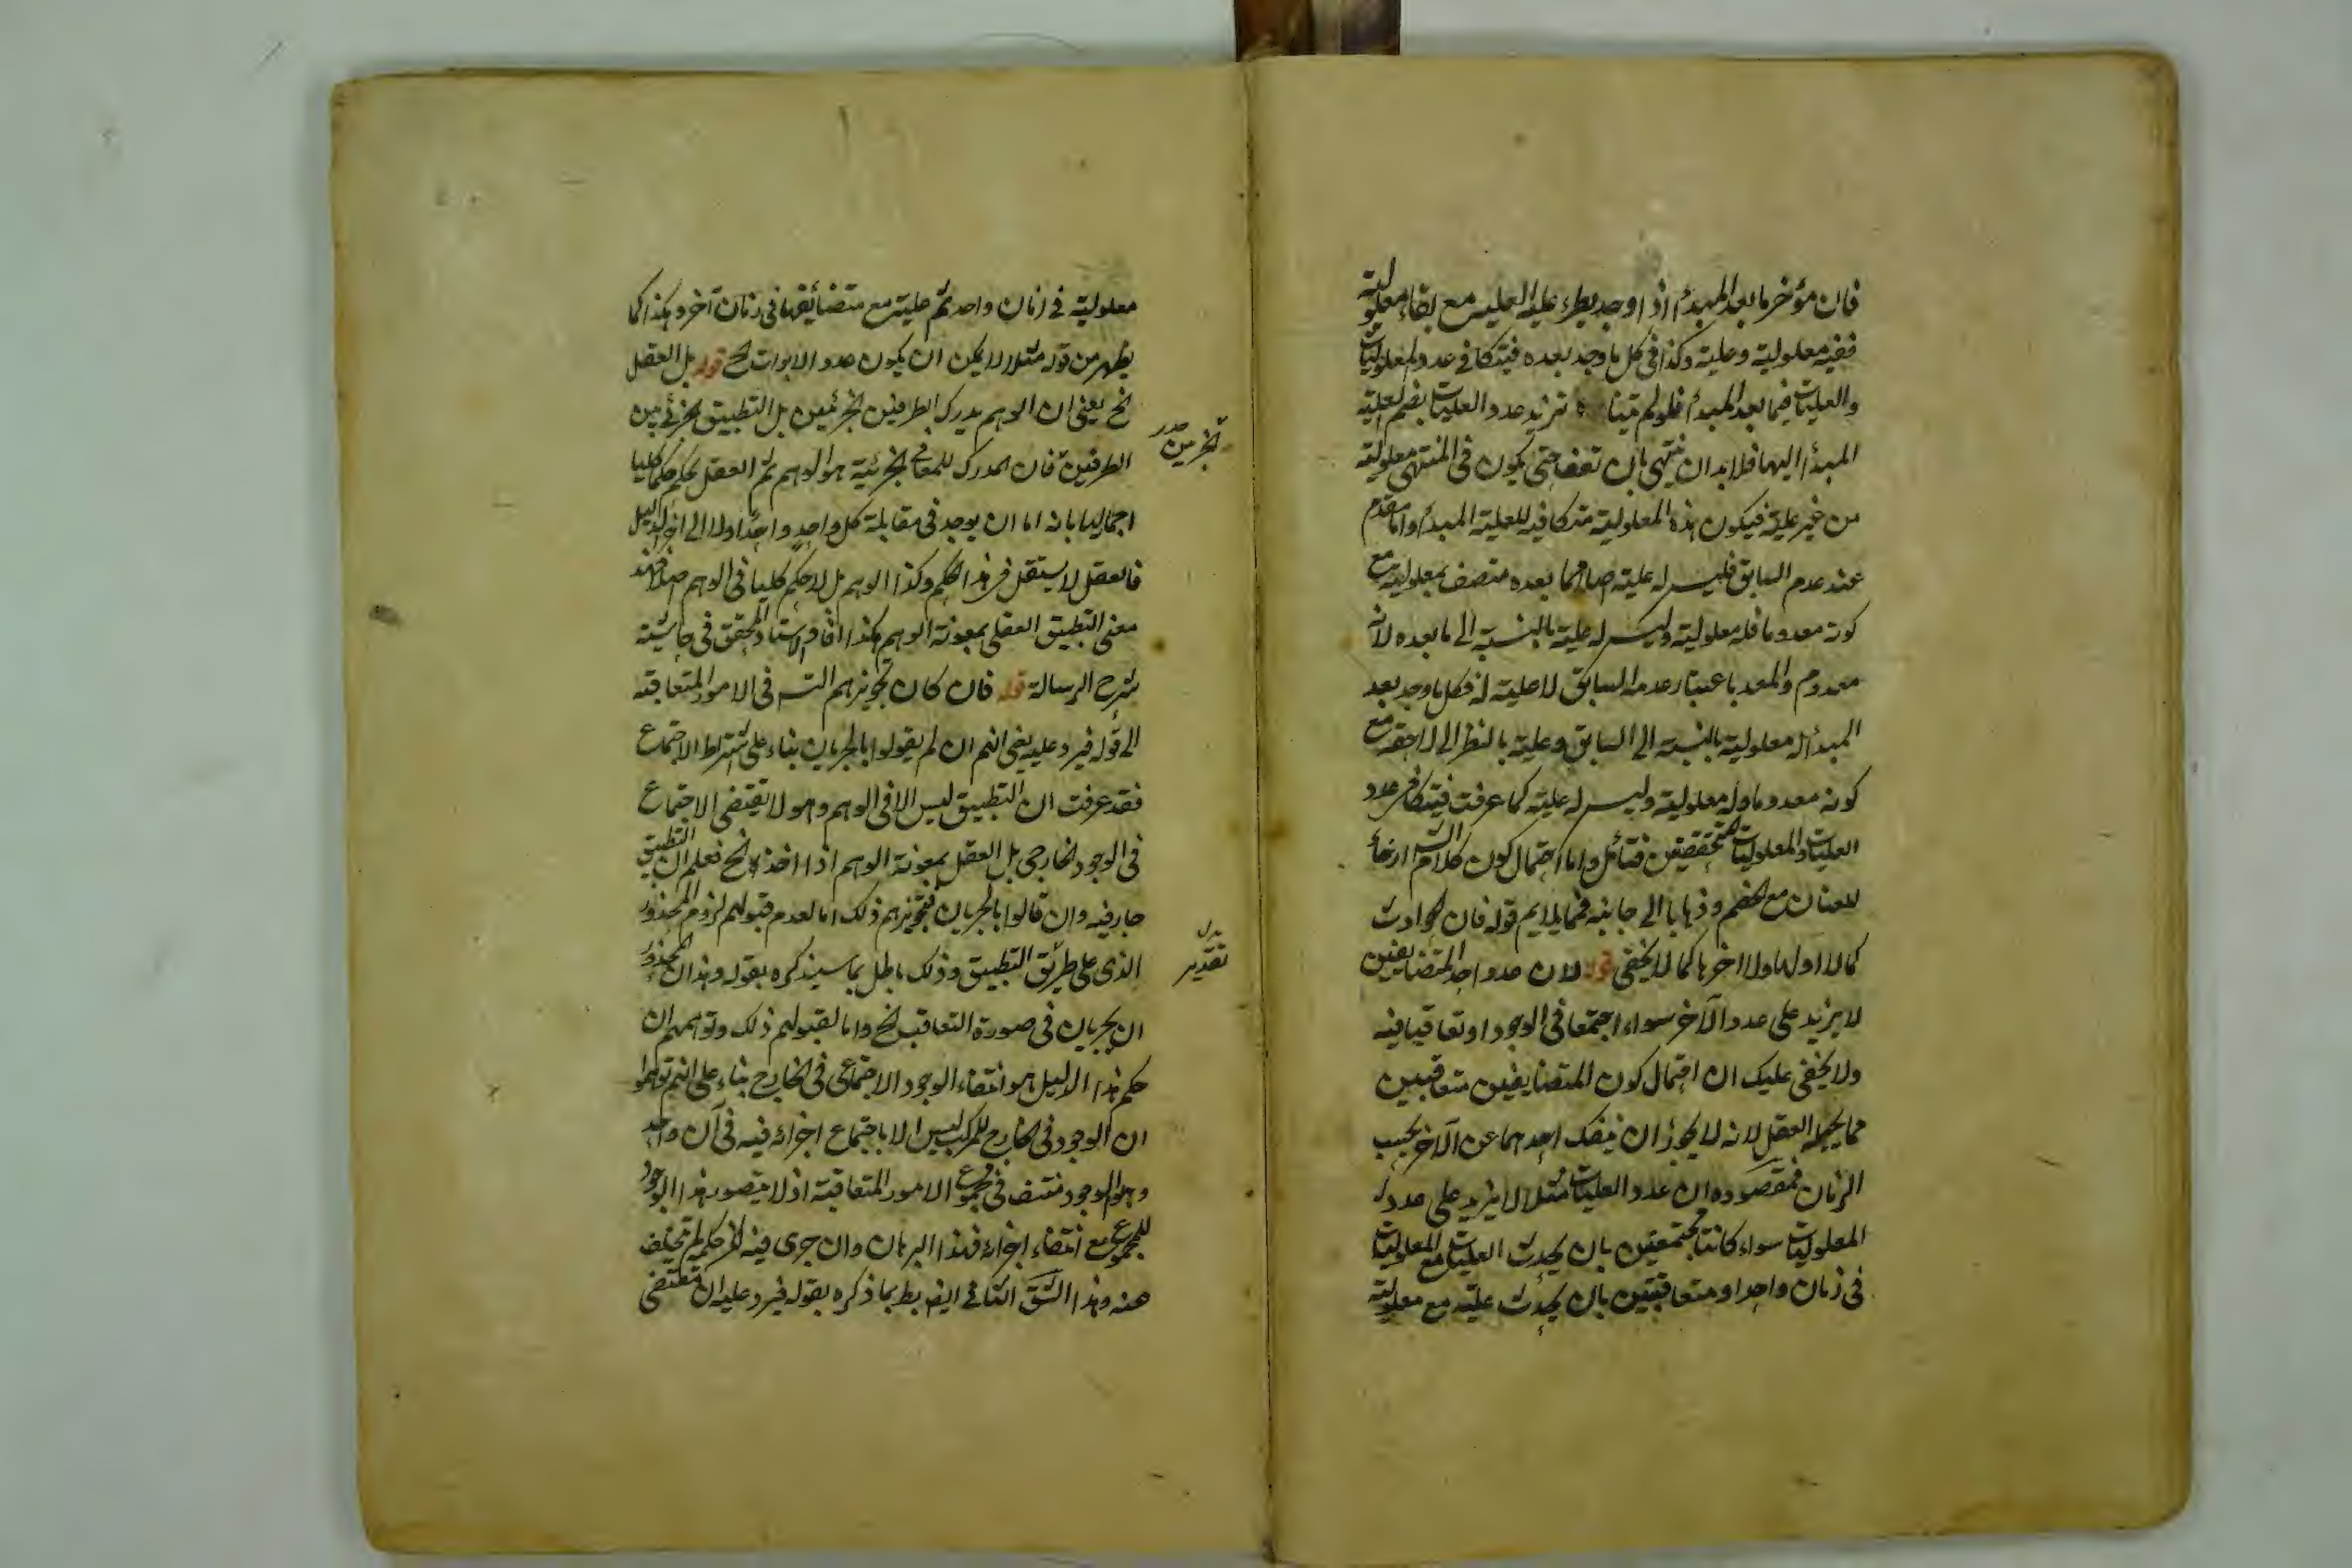 فان مؤخر ما بعد المبدأ اذا وجد يطرء عليه العلية مع بقاء معلولية
ففيه معلولية وعلية وكذا في كل ما وجد بعده فيتكافي عدد المعلوليات
والعليات فيما بعد المبدأ فلو لم يتناه تزيد عدد العليات بضم العلية
المبدأ اليها فلابد ان ينتهي بان حتى يكون في المنتهى معلولية
من غير علية فيكون هذه المعلولية متكافية للعلية المبدأ واما مقدم
عند عدم السابق فليس له علية بعده متصف بمعلولية مع
كونه معدوما فله معلولية وليس له علية بالنسبة الى ما بعده لانه
معدوم والمعد باعتبار عدمه السابق لا علية له فكل ما وجد بعد
المبدأ له معلولية بالنسبة الى السابق وعلية بالنظر الى لاحقه مع
كونه معدوما وله معلولية وليس له علية كما عرفت فيتكافي عدد
العليات والمعلوليات فتأمل واما احتمال كون كلام ارخاء
للعنان مع الخصم وذهابا الى جانبه فما يلايم قوله فان الحوادث
كما لا اول لها ولا اخر لها كما لا يخفى قوله لان عدد احد المتضايفين
لا يزيد على عدد الآخر سواء اجتمعا في الوجود او تعاقبا فيه
ولا يخفى عليك ان احتمال كون المتضايفين متعاقبين
مما يحيله العقل لانه لا يجوز ان ينفك احدهما عن الآخر بحسب
الزمان فمقصوده ان عدد العليات مثلا لا يزيد على عدد
المعلوليات سواء كانتا مجتمعتين بان يحدث العليات مع المعلوليات
في زمان واحد او متعاقبتين بان يحدث علية مع معلولية
معلولية في زمان واحد ثم علية مع متضائفها في زمان آخر وهكذا كما
يظهر من قوله مثلا لا يمكن ان يكون عدد الابوات الخ قوله بل العقل
الخ يعني ان الوهم يدرك الطرفين الجزئيين بل التطبيق الجزئي بين
الطرفين فان المدرك للمعاني الجزئية هو الوهم ثم العقل يحكم حكما كليا
اجماليا بانه اما ان يوجد في مقابلة كل واحد واحد اولا الى آخر الدليل
فالعقل لا يستقل في هذا الحكم وكذا الوهم بل لا حكم كليا في الوهم اصلا فهذا
معنى التطبيق العقلي بمعونة الوهم هكذا افاد الاستاد المحقق في حاشية
شرح الرسالة قوله فان كان تجويزهم التس في الامور المتعاقبة
الى قوله فيرد عليه يعني انهم ان لم يقولوا بالجريان بناء على اشتراط الاجتماع
فقد عرفت ان التطبيق ليس الا في الوهم وهو لا يقتضي الاجتماع
في الوجود الخارجي بل العقل بمعونة الوهم اذا اخذ الخ فعلم ان التطبيق
جار فيه وان قالوا بالجريان فتجويزهم ذلك اما لعدم قبولهم لزوم المحذور
الذي على طريق التطبيق وذلك باطل بما سيذكره بقوله وهذا المحذور
ان يجريان في صورة التعاقب الخ واما لقبولهم ذلك وتوهمهم ان
حكم هذا الدليل هو انتفاء الوجود الاجتماعي في الخارج بناء على انهم توهموا
ان الوجود في الخارج للمركب ليس الا باجتماع اجزائه فيه في آن واحد
وهو الوجود منتف في مجموع الامور المتعاقبة اذ لا يتصور هذا الوجود
للمجموع مع انتفاء اجزائه فهذا البرهان وان جرى فيه لكن حكمه لم يتخلف
عنه وهذا الشق الثاني ايضا بط بما ذكره بقوله فيرد عليه ان مقتضى
تقدير